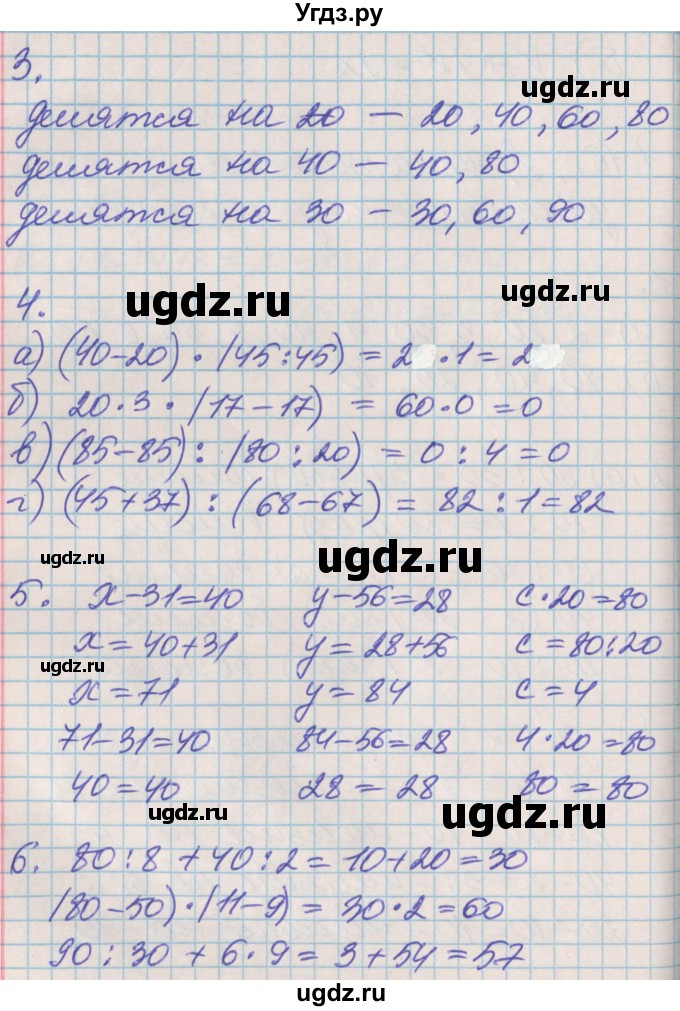 Угдз.ру
3.
ugdz.ru
делятся на 20 — 20, 40, 60, 80
делятся на 40 — 40, 80
делятся на 30 — 30, 60, 90
4.
ugdz.ru
ugdz.ru
а) (40-20) · (45:45) = 2 · 1 = 2
б) 20·3 · (17-17) = 60·0 = 0
в) (85-85) : (80:20) = 0 : 4 = 0
г) (45+37) : (68-67) = 82 : 1 = 82
ugdz.ru
ugdz.ru
5. x-31=40 y-56=28 c·20=80
x=40+31 y=28+56 c=80:20
ugdz.ru
x=71 y=84 c=4
71-31=40 84-56=28 4·20=80
40=40 28=28 80=80
ugdz.ru
ugdz.ru
6. 80:8+40:2=10+20=30
(80-50)·(11-9)=30·2=60
90:30+6·9=3+54=57
ugdz.ru